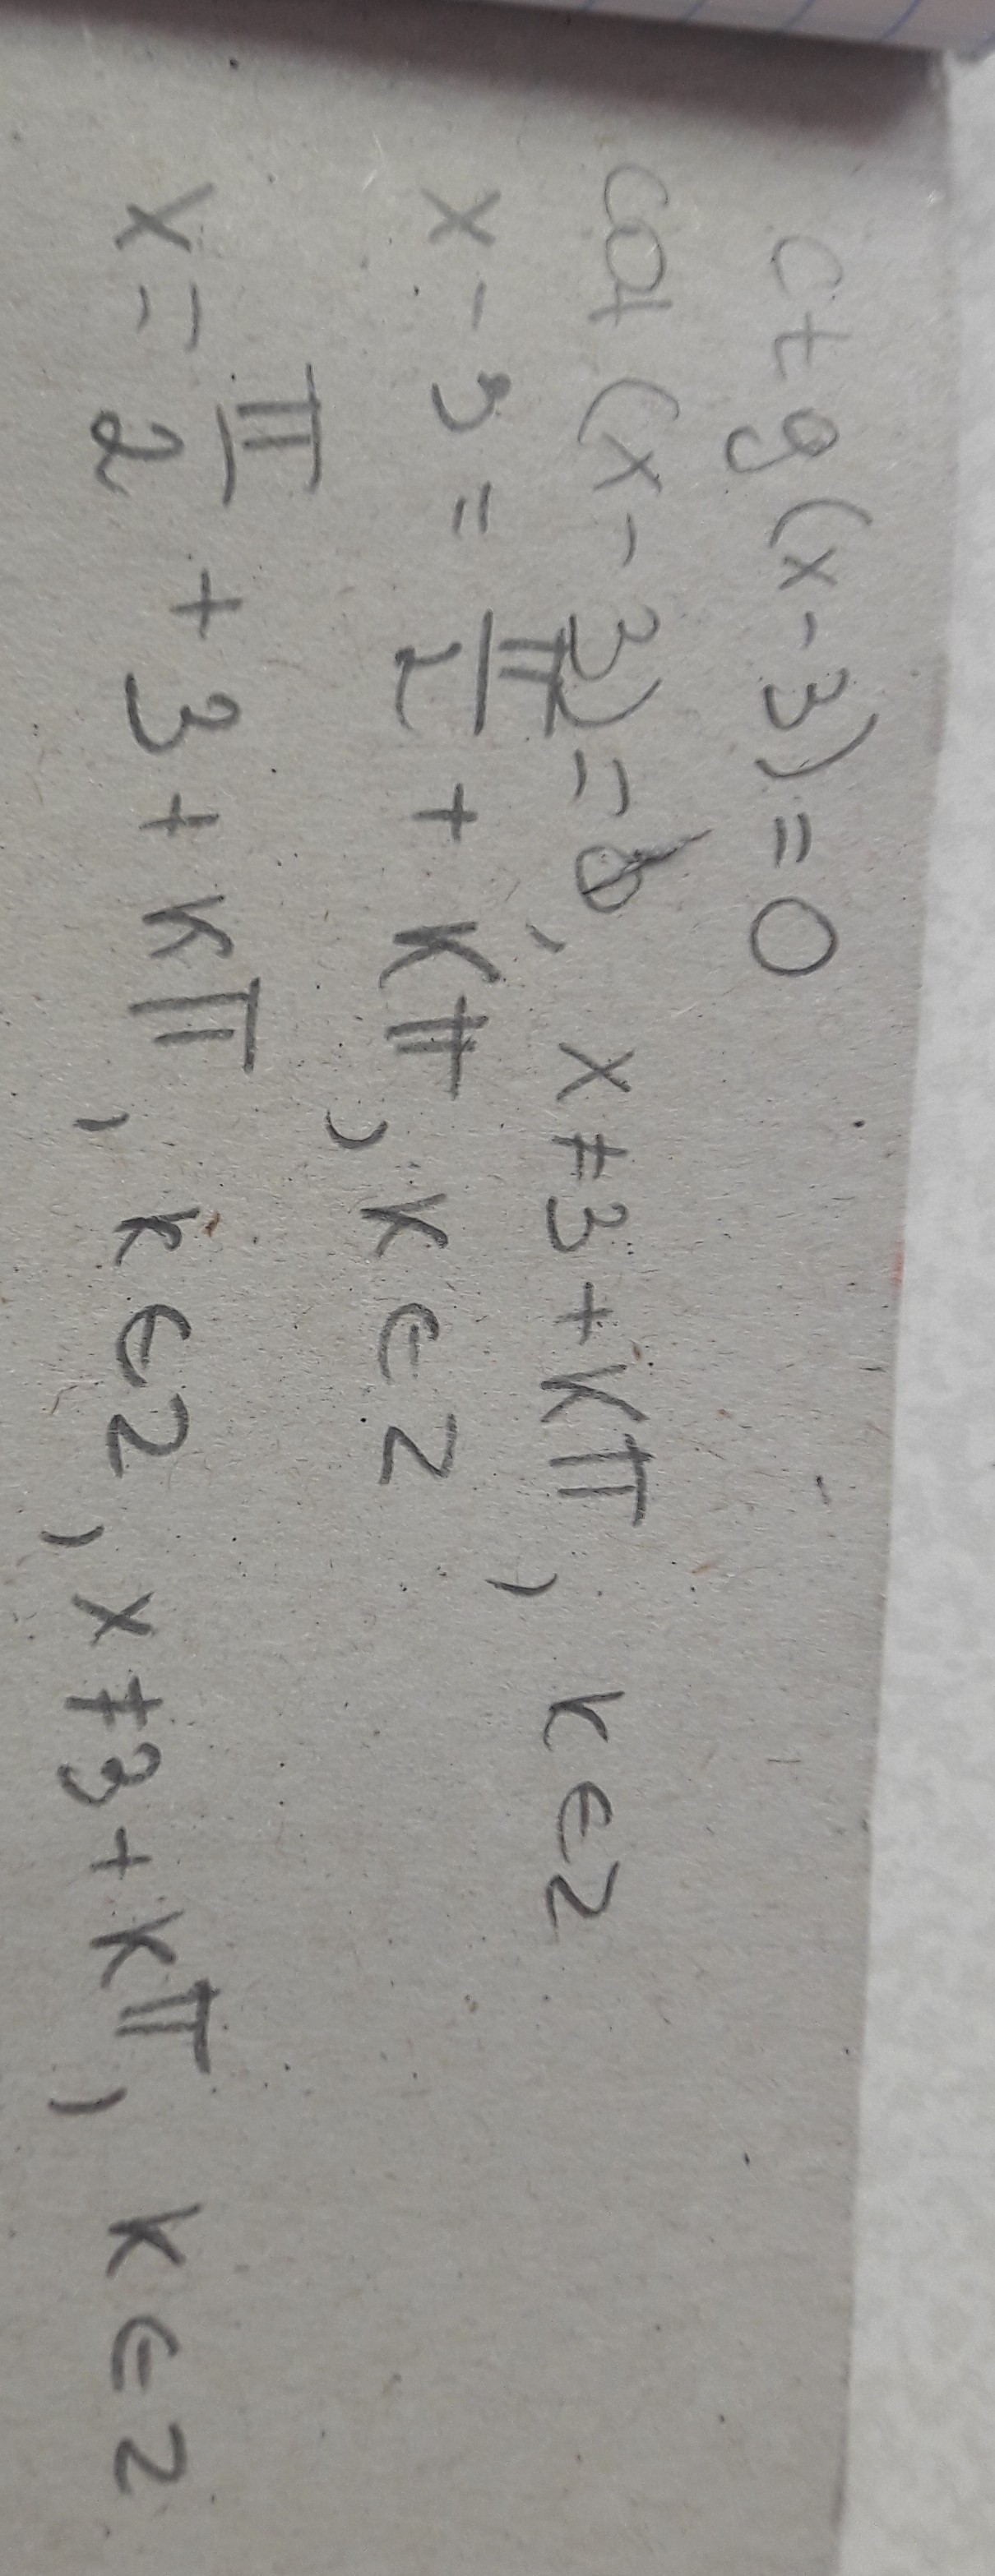 ctg(x-3)=0
cot(x-3)=0, x≠3+kπ, k∈Z
x-3=π/2+kπ, k∈Z
x=π/2+3+kπ, k∈Z, x≠3+kπ, k∈Z